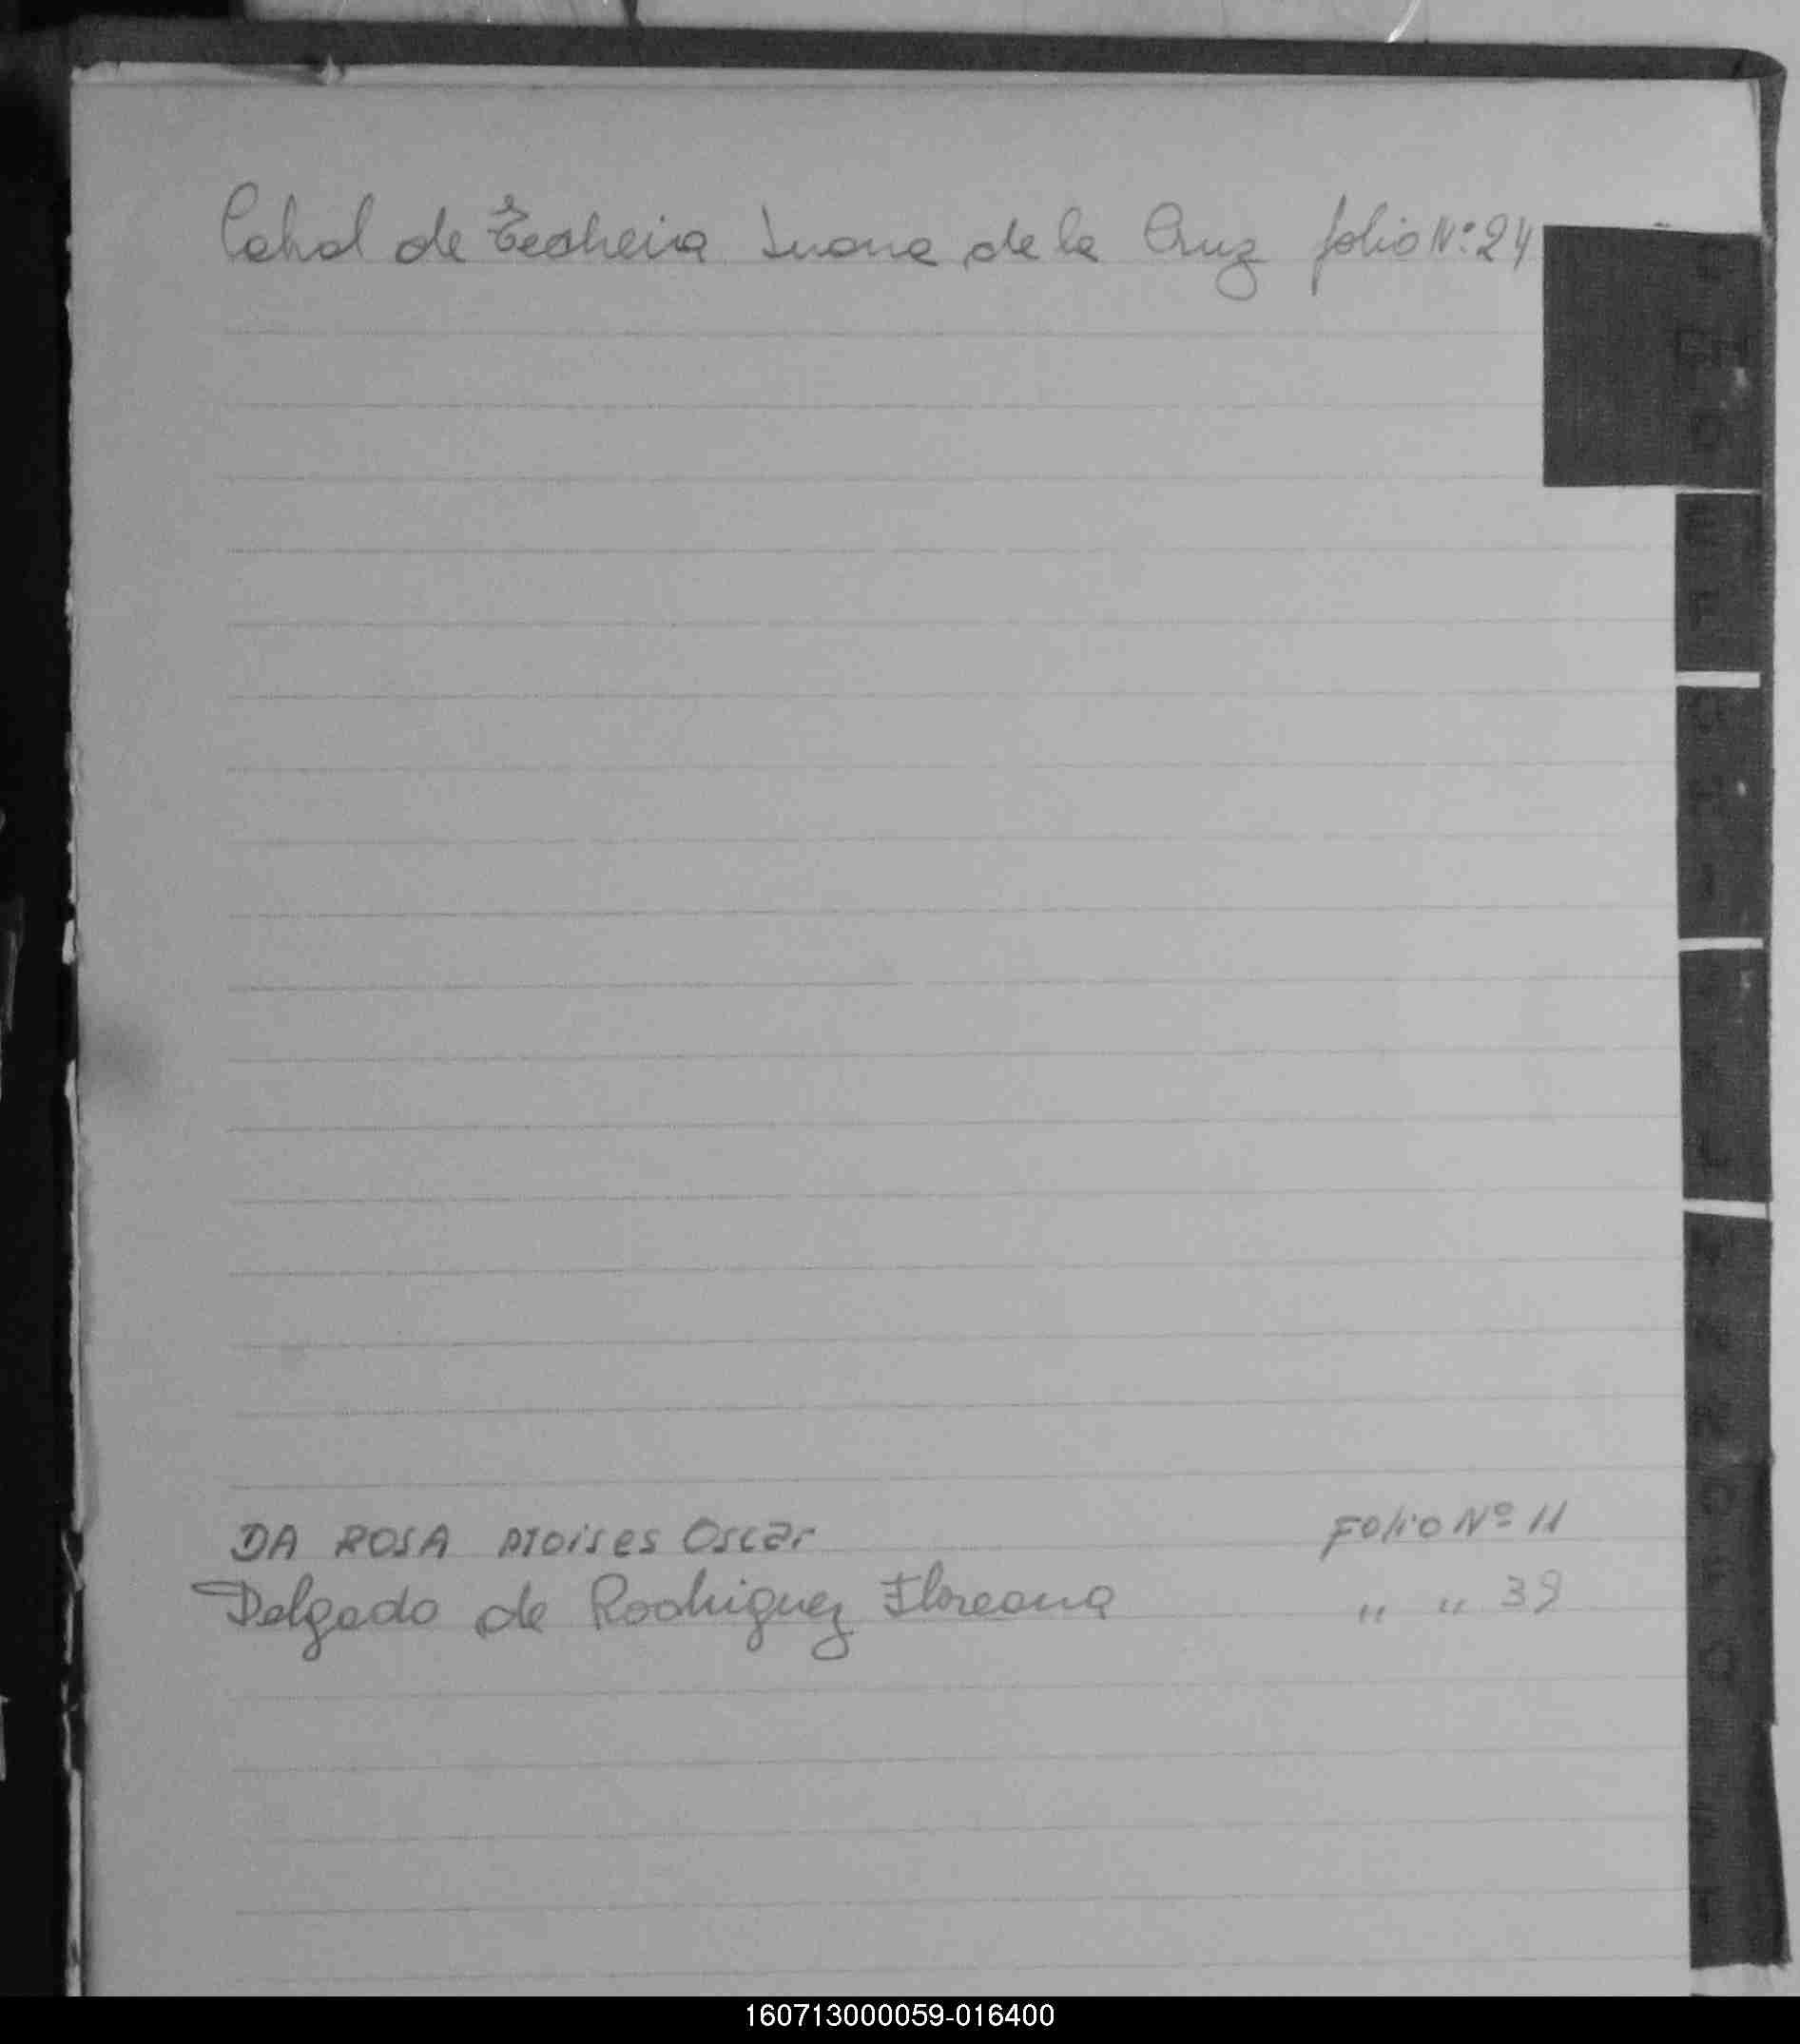 Cabral de Juana de la Cruz folio Nº 24
DA ROSA Moises Oscar FOLIO Nº 11
Delgado de Rodriguez Floreana " " 39
160713000059-016400